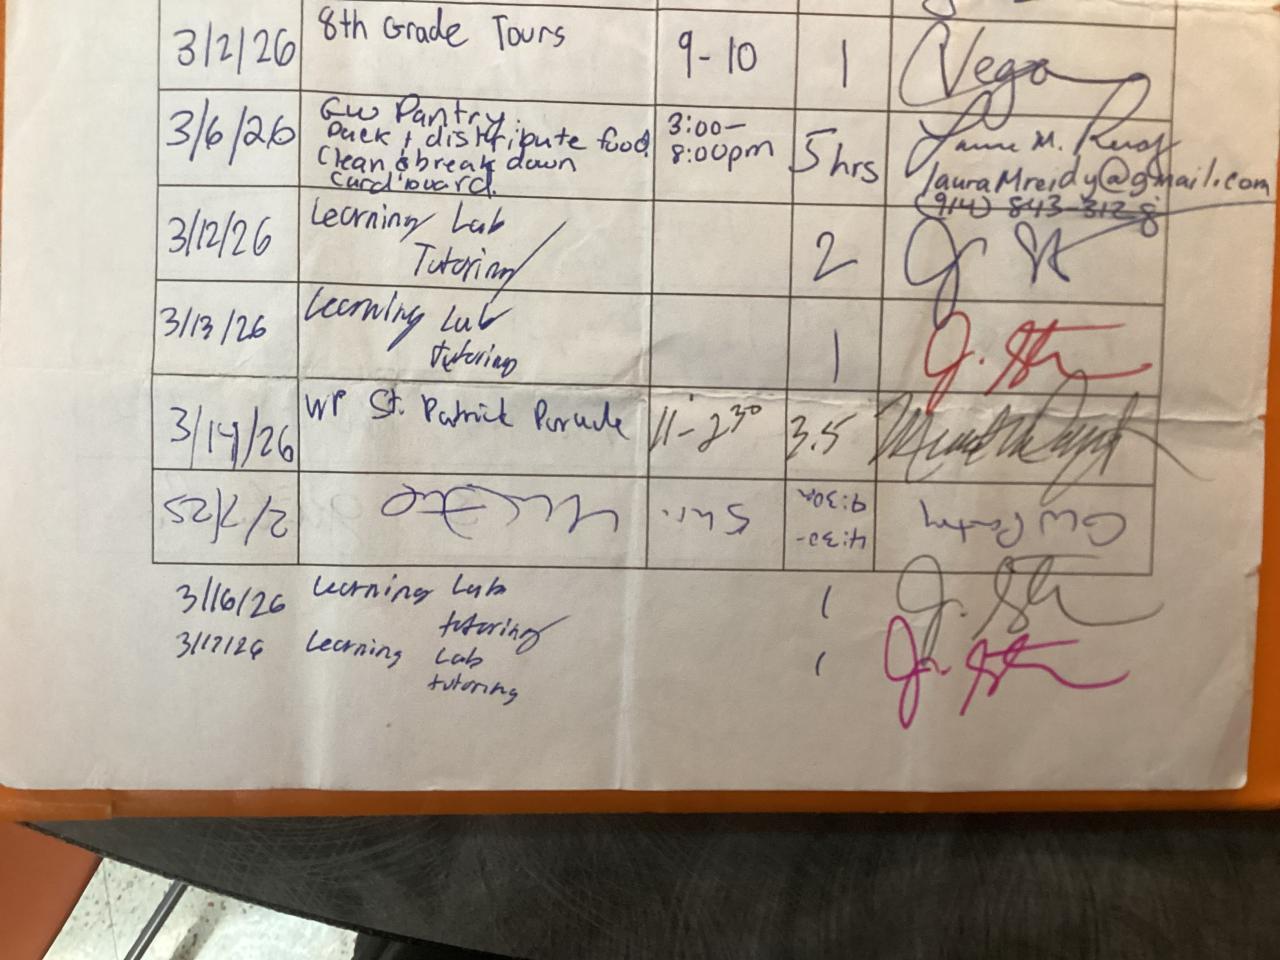 3/2/26 8th Grade Tours 9-10 1 Vega
3/6/26 GW Pantry. 3:00-8:00pm 5 hrs Laura M. Reidy
Pack + distribute food
Clean & break down
Cardboard.
lauraMreidy@gmail.com
(914) 843-3128
3/12/26 Learning Lab 2
Tutoring
3/13/26 Learning Lab 1
tutoring
3/14/26 WP St. Patrick Parade 11-2³⁰ 3.5
GW Pantry 4:30-9:30pm 5 hr. 2/7/25
3/16/26 Learning Lab 1
tutoring
3/17/26 Learning Lab 1
tutoring